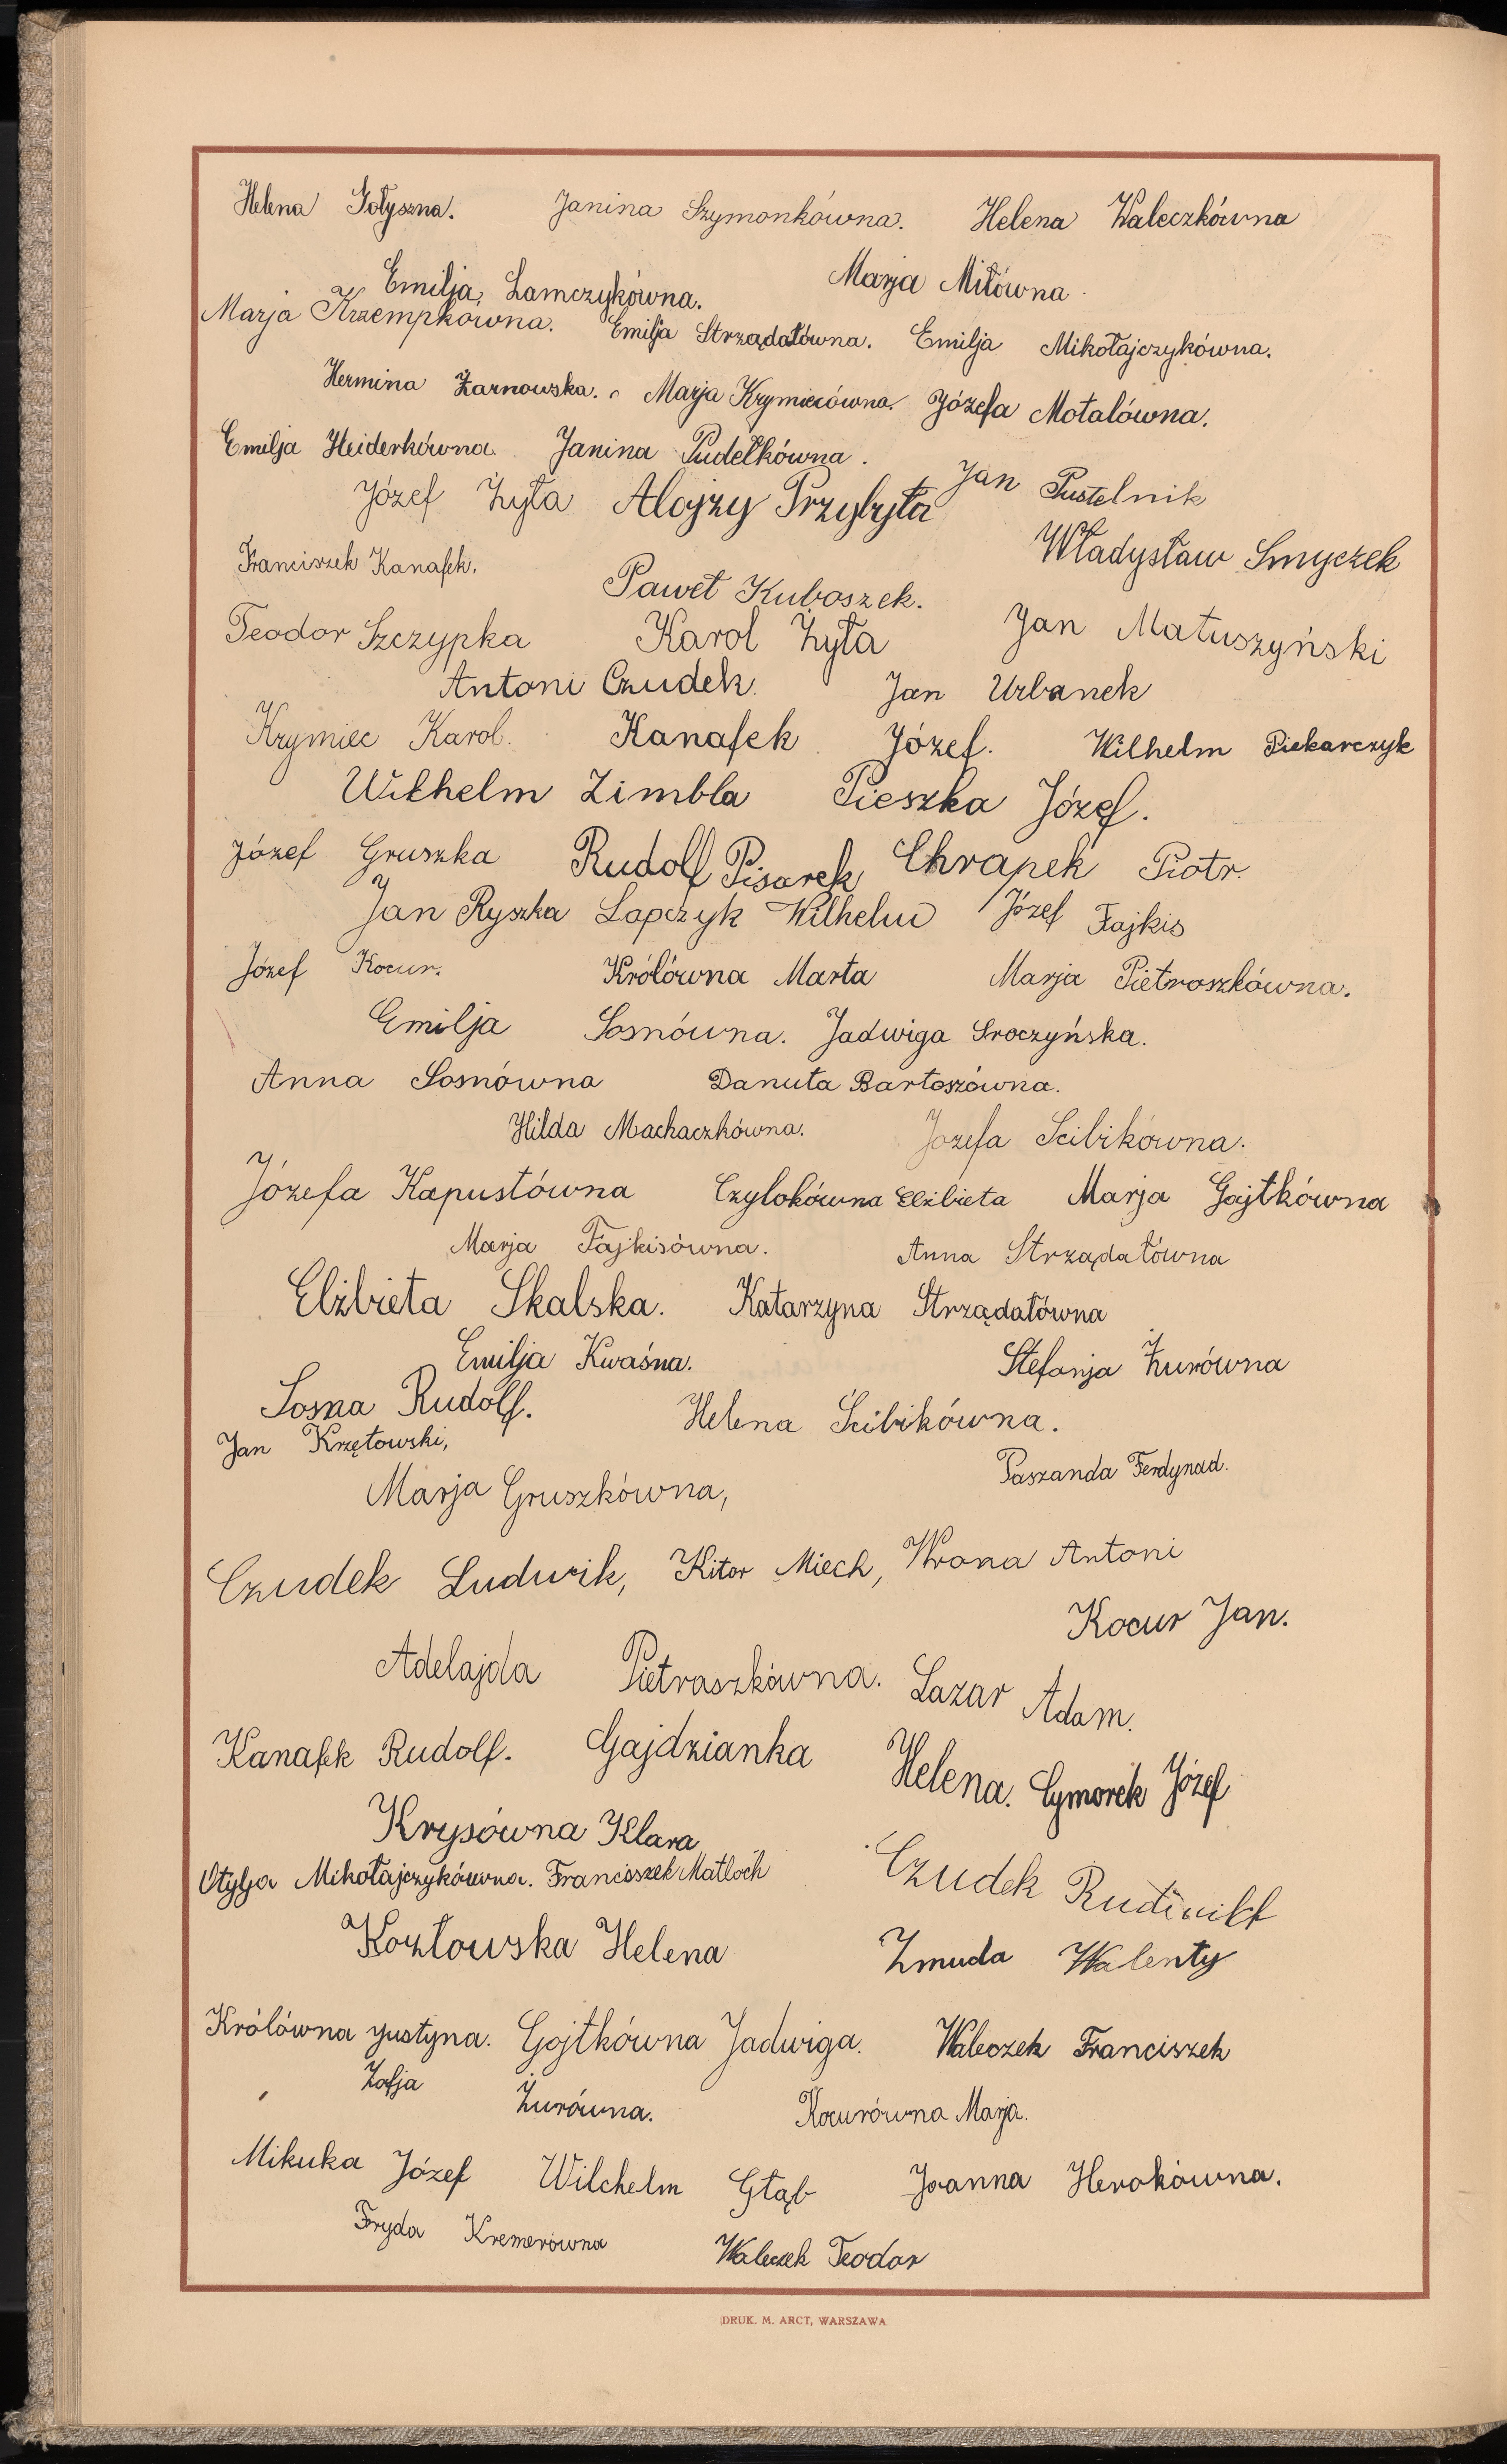 Helena Gołyszna. Janina Szymonkówna. Helena Waleczkówna
Emilja Lamczykówna. Marja Miłówna.
Marja Krzempkówna. Emilja Strządałówna. Emilja Mikołajczykówna.
Hermina Żarnowska. Marja Krymiecówna. Józefa Motalówna.
Emilja Heiderkówna. Janina Pudełkówna.
Józef Żyła Alojzy Przybyła Jan Pustelnik
Franciszek Kanafek. Paweł Kuboszek. Władysław Smyczek
Teodor Szczypka Karol Żyła Jan Matuszyński
Antoni Czudek. Jan Urbanek
Krymiec Karol. Kanafek Józef. Wilhelm Piekarczyk
Wilhelm Zimbla Pieszka Józef.
Józef Gruszka Rudolf Pisarek Chrapek Piotr.
Jan Ryszka Lapczyk Wilhelm Józef Fajkis
Józef Kocur. Królówna Marta Marja Pietroszkówna.
Emilja Sosnówna. Jadwiga Sroczyńska.
Anna Sosnówna Danuta Bartoszówna.
Hilda Machaczkówna. Jozefa Scibikówna.
Józefa Kapustówna Czylokówna Elżbieta Marja Gajtkówna
Marja Fajkisówna. Anna Strządałówna
Elżbieta Skalska. Katarzyna Strządałówna
Emilja Kwaśna. Stefanja Żurówna
Sosna Rudolf. Helena Ścibikówna.
Jan Krzętowski, Paszanda Ferdynad.
Marja Gruszkówna,
Czudek Ludwik, Kitor Miech, Wrona Antoni
Kocur Jan.
Adelajda Pietraszkówna. Lazar Adam.
Kanafek Rudolf. Gajdzianka Helena. Cymorek Józef
Krysówna Klara
Otylja Mikołajczykówna. Franciszek Matloch Czudek
Kozłowska Helena Żmuda Walenty
Królówna Justyna. Gojtkówna Jadwiga. Waleczek Franciszek
Zofja Żurówna. Kocurówna Marja.
Mikuka Józef Wilchelm Głąb Joanna Herokówna.
Fryda Kremerówna Waleczek Teodor
DRUK. M. ARCT, WARSZAWA